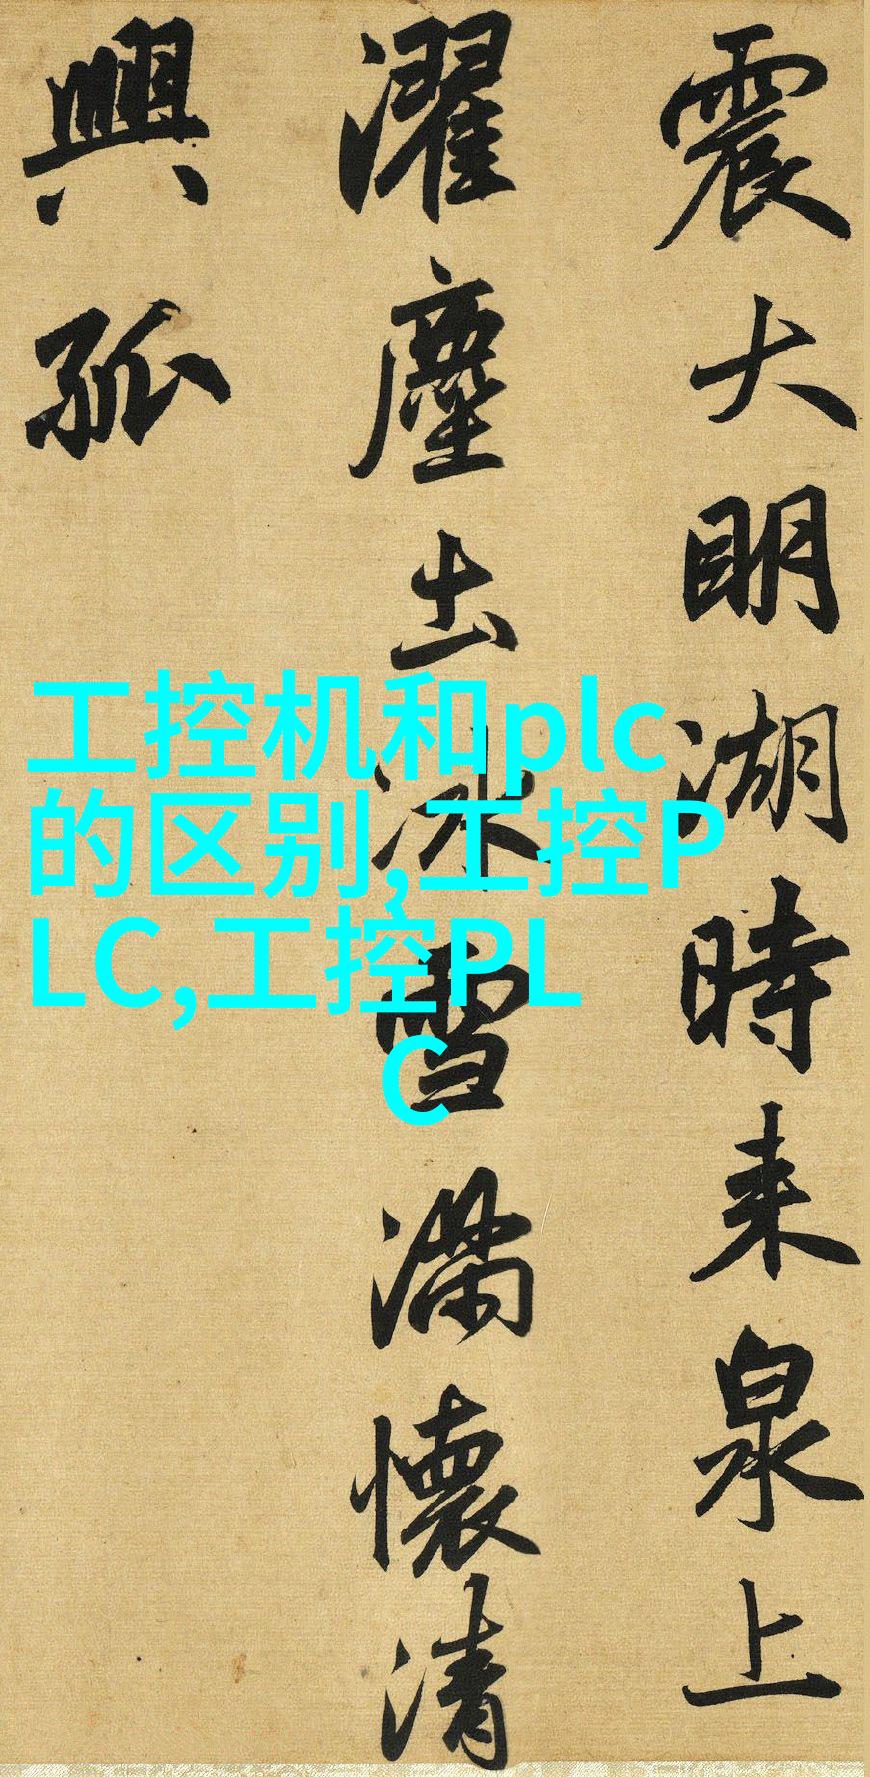 震大明湖時来泉上
濯塵土冰雪滿懷清
興孤
工控机和plc
的区别,工控P
LC,工控PL
C